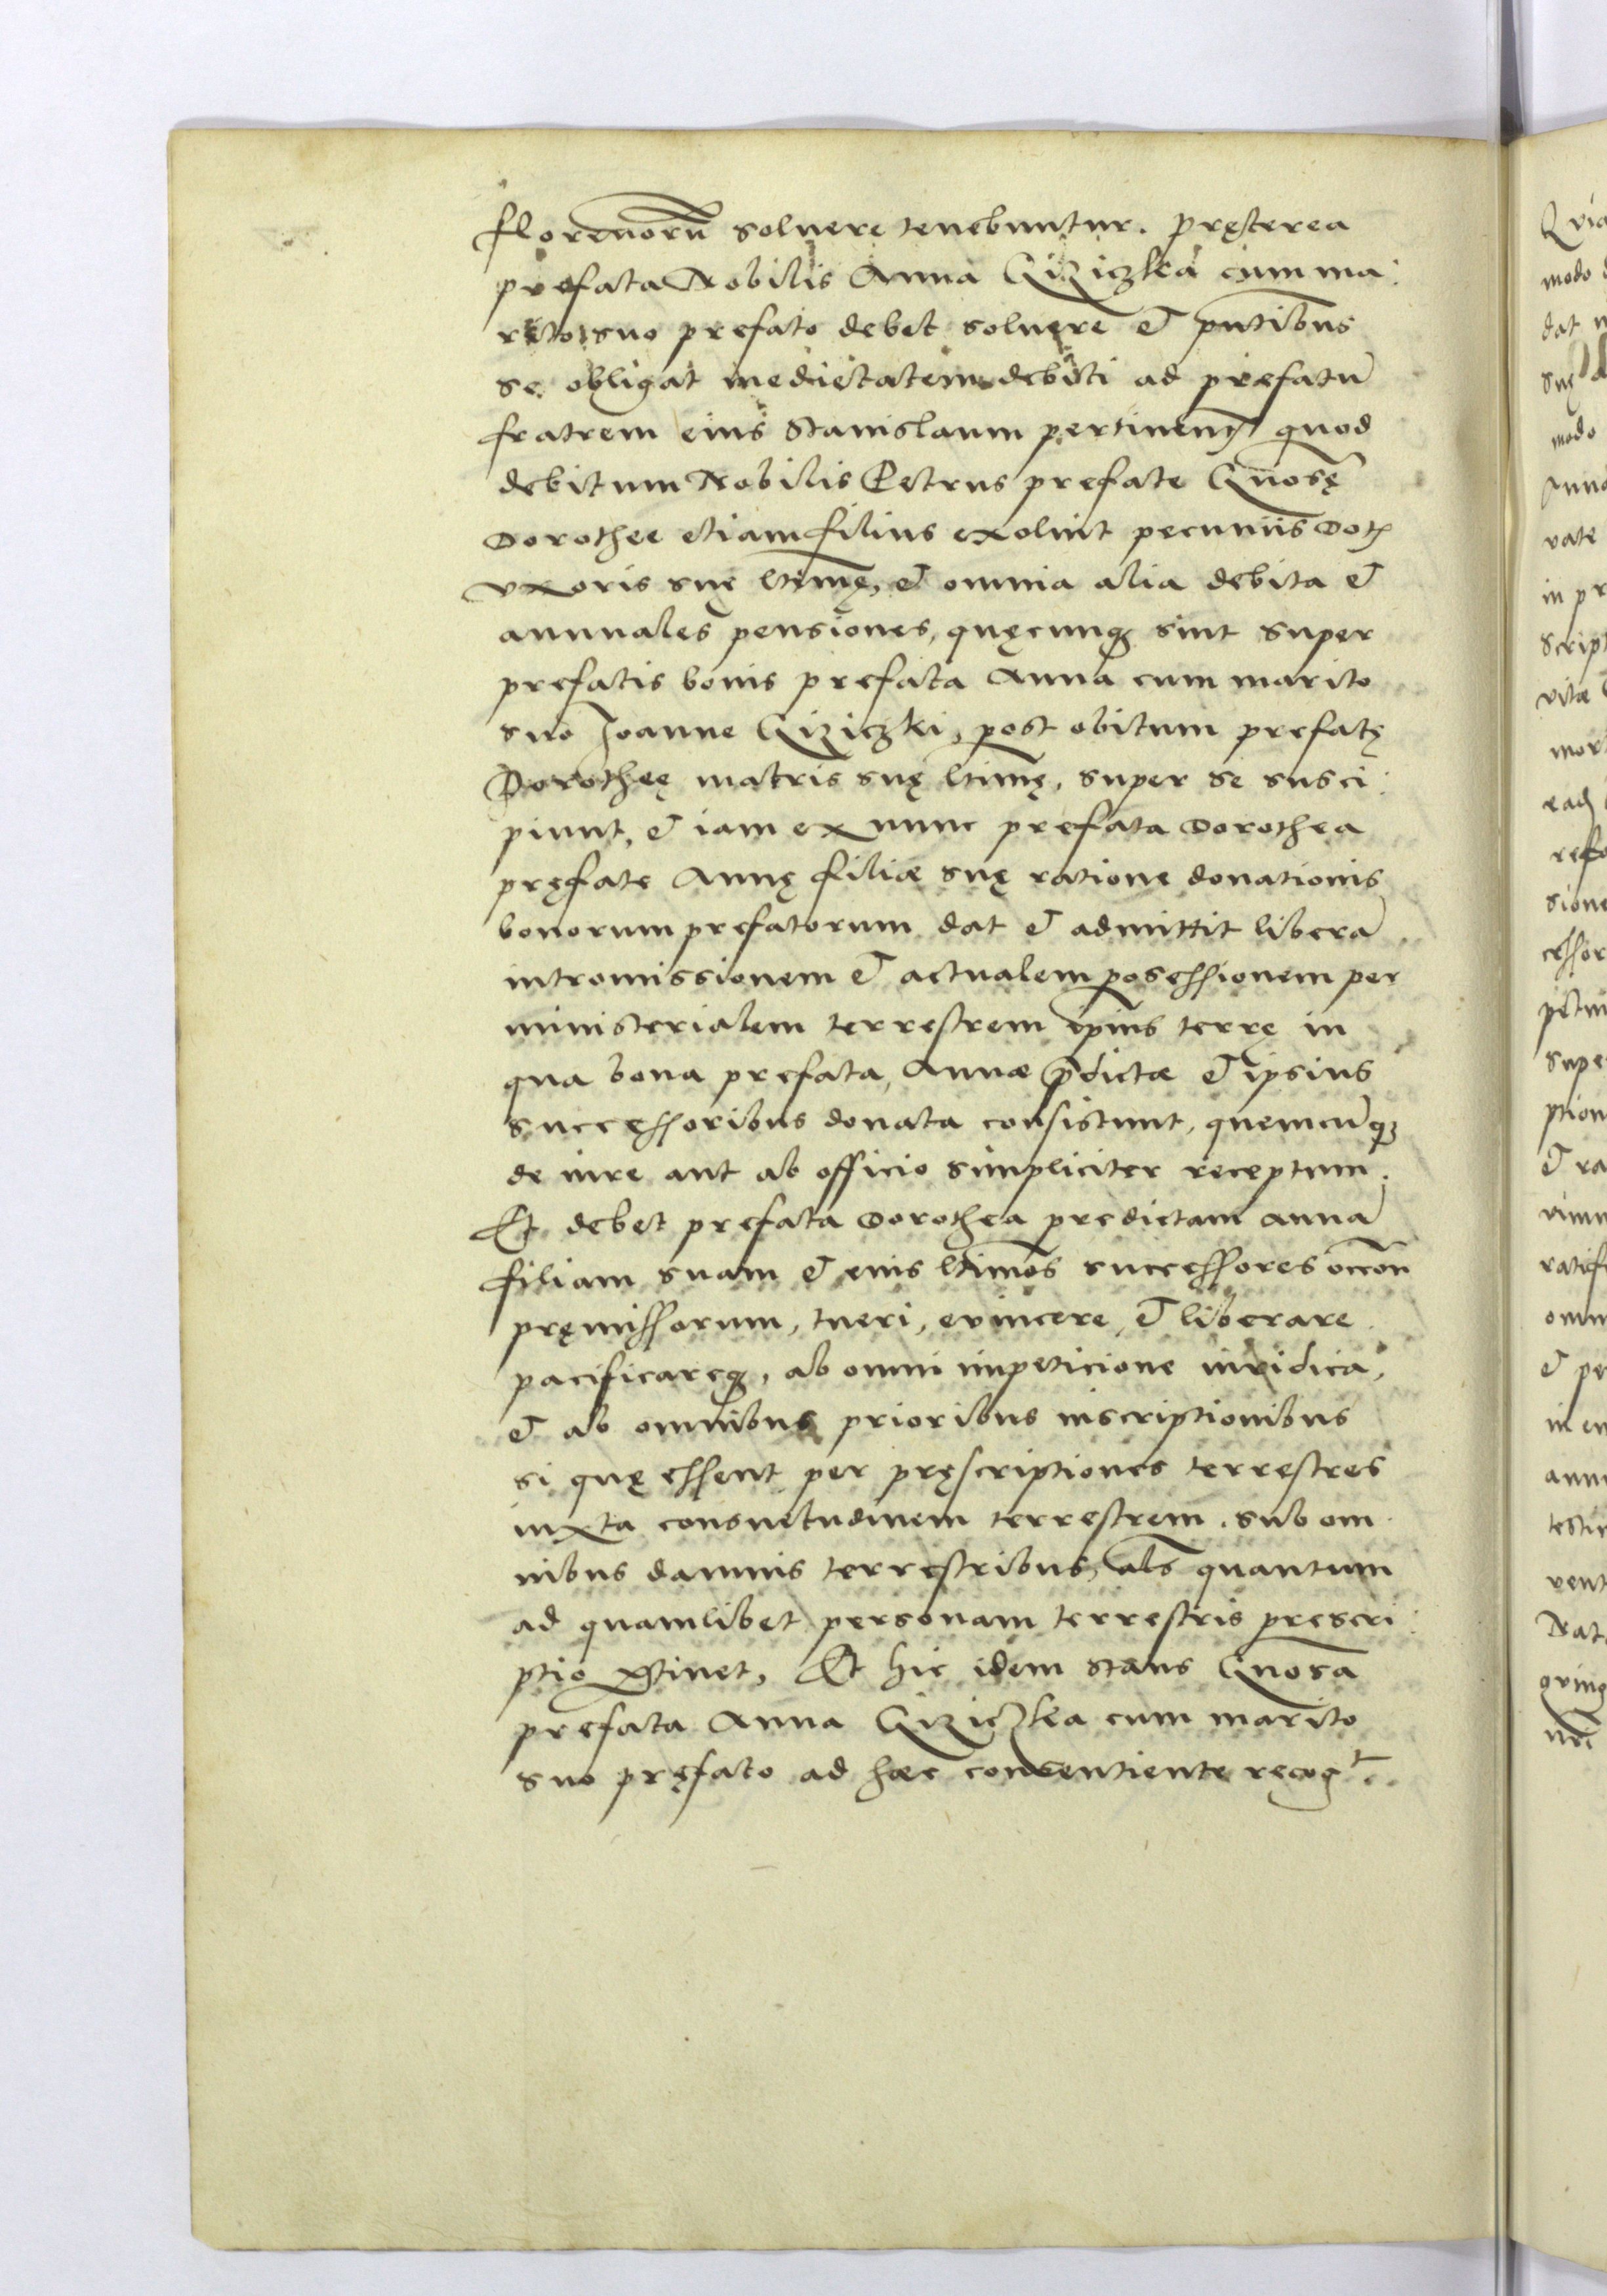 florenorū soluere tenebuntur. Pręterea
prefata Nobilis Anna Giziczka cum ma:
rito suo prefato debet soluere et pn̄tibus
se obligat medietatem debiti ad prefatū
fratrem eius Stanislaum pertinen̄ quod
debitum Nobilis Petrus prefate Gn̄osę
Dorothee etiam filius exoluit pecuniis Dot̄
vxoris suę ltīmę, et omnia alia debita et
annuales pensiones, quęcunq₃ sint super
prefatis bonis prefata Anna cum marito
suo Joanne Giziczki, post obitum prefatę
Dorotheę matris suę ltīmę, super se susci:
piunt, et iam ex nunc prefata Dorothea
pręfate Annę filiæ suę ratione donationis
bonorum prefatorum dat et admittit liberā
intromissionem et actualem possessionem per
ministerialem terrestrem ip̄ius terrę in
qua bona prefata, Annæ p̄dictæ et ipsius
successoribus donata consistunt, quemcūq₃
de iure aut ab officio simpliciter receptum.
Et debet prefata Dorothea predictam Annā
filiam suam et eius ltīmos successores occōn
pręmissorum, tueri, euincere, et liberare
pacificareq₃, ab omni impeticione iuridica,
et ab omnibus prioribus inscriptionibus
si quę essent per pręscriptiones terrestres
iuxta consuetudinem terrestrem. sub om
nibus damnis terrestribus, als̄ quantum
ad quamlibet personam terrestris prescri:
ptio p̱tinet, Et hic idem stans Gn̄osa
prefata Anna Giziczka cum marito
suo pręfato ad hæc conuentiente recogt.
Quia
modo
dat
suę
modo
Anna
vate
in pr
script
vitæ
mor
ead
refa
sione
essor
petui
supe
ption
et ra
ratifi
omn
et pe
in eu
annu
testi
vent
Nat